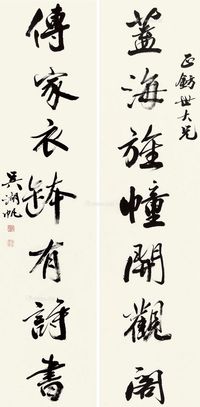 正鈁世大兄
蓋海旌幢開觀閣
傳家衣鉢有詩書
吳湖帆